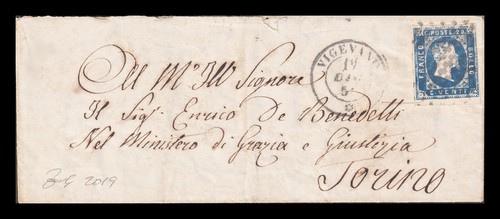 VIGEVANO
19
C. POSTE 20
FRANCO
BOLLO
C. VENTI
All Mto Ill Signore
Il Sigr Enrico De Benedetti
Nel Ministero di Grazia e Giustizia
Torino
2019